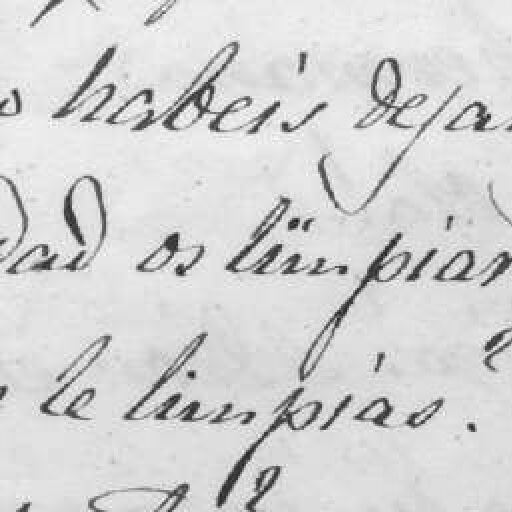 habeis deja
dad os limpiar
le limpias.